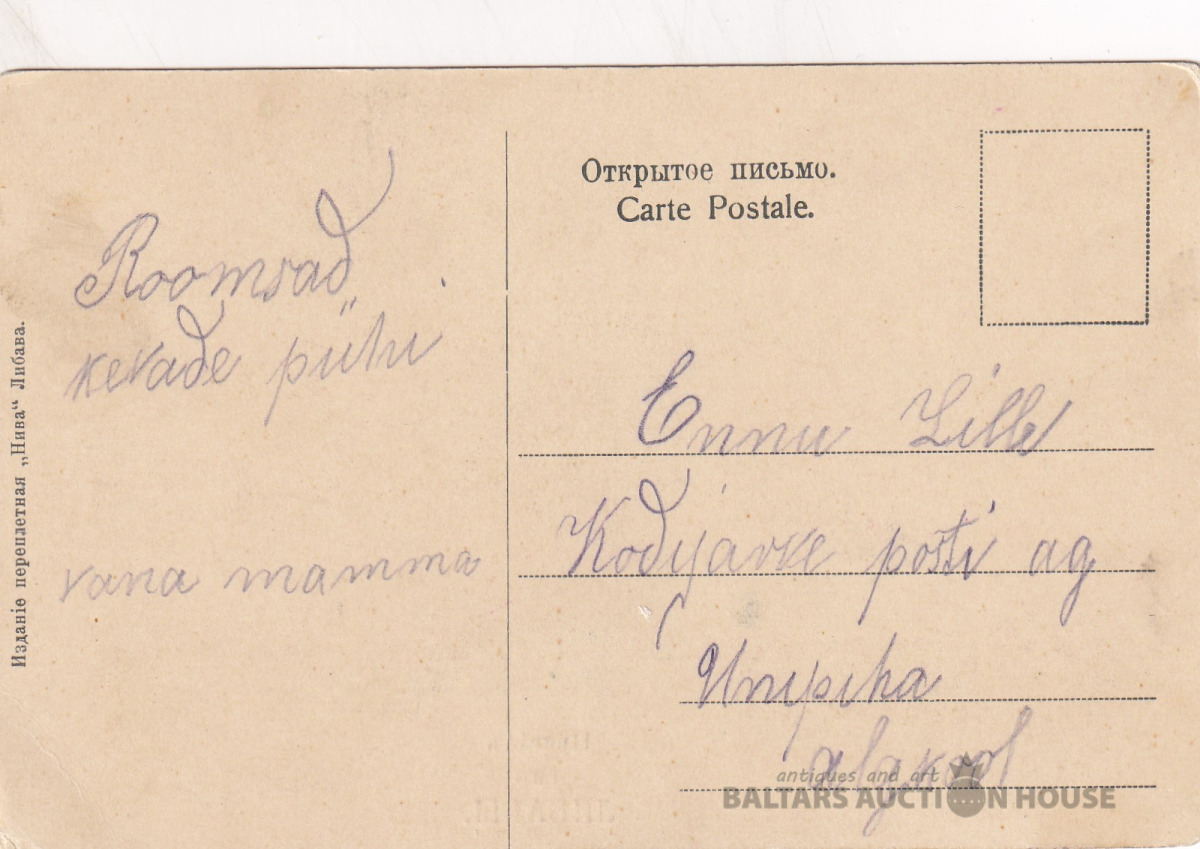 Открытое письмо.
Carte Postale.
Изданіе переплетная „Нива“ Либава.
Roomsad
kevade pühi
vana mamma
Ennu Lille
Kodijärve posti ag
Unipiha
algkool
antiques and art
BALTARS AUCTION HOUSE